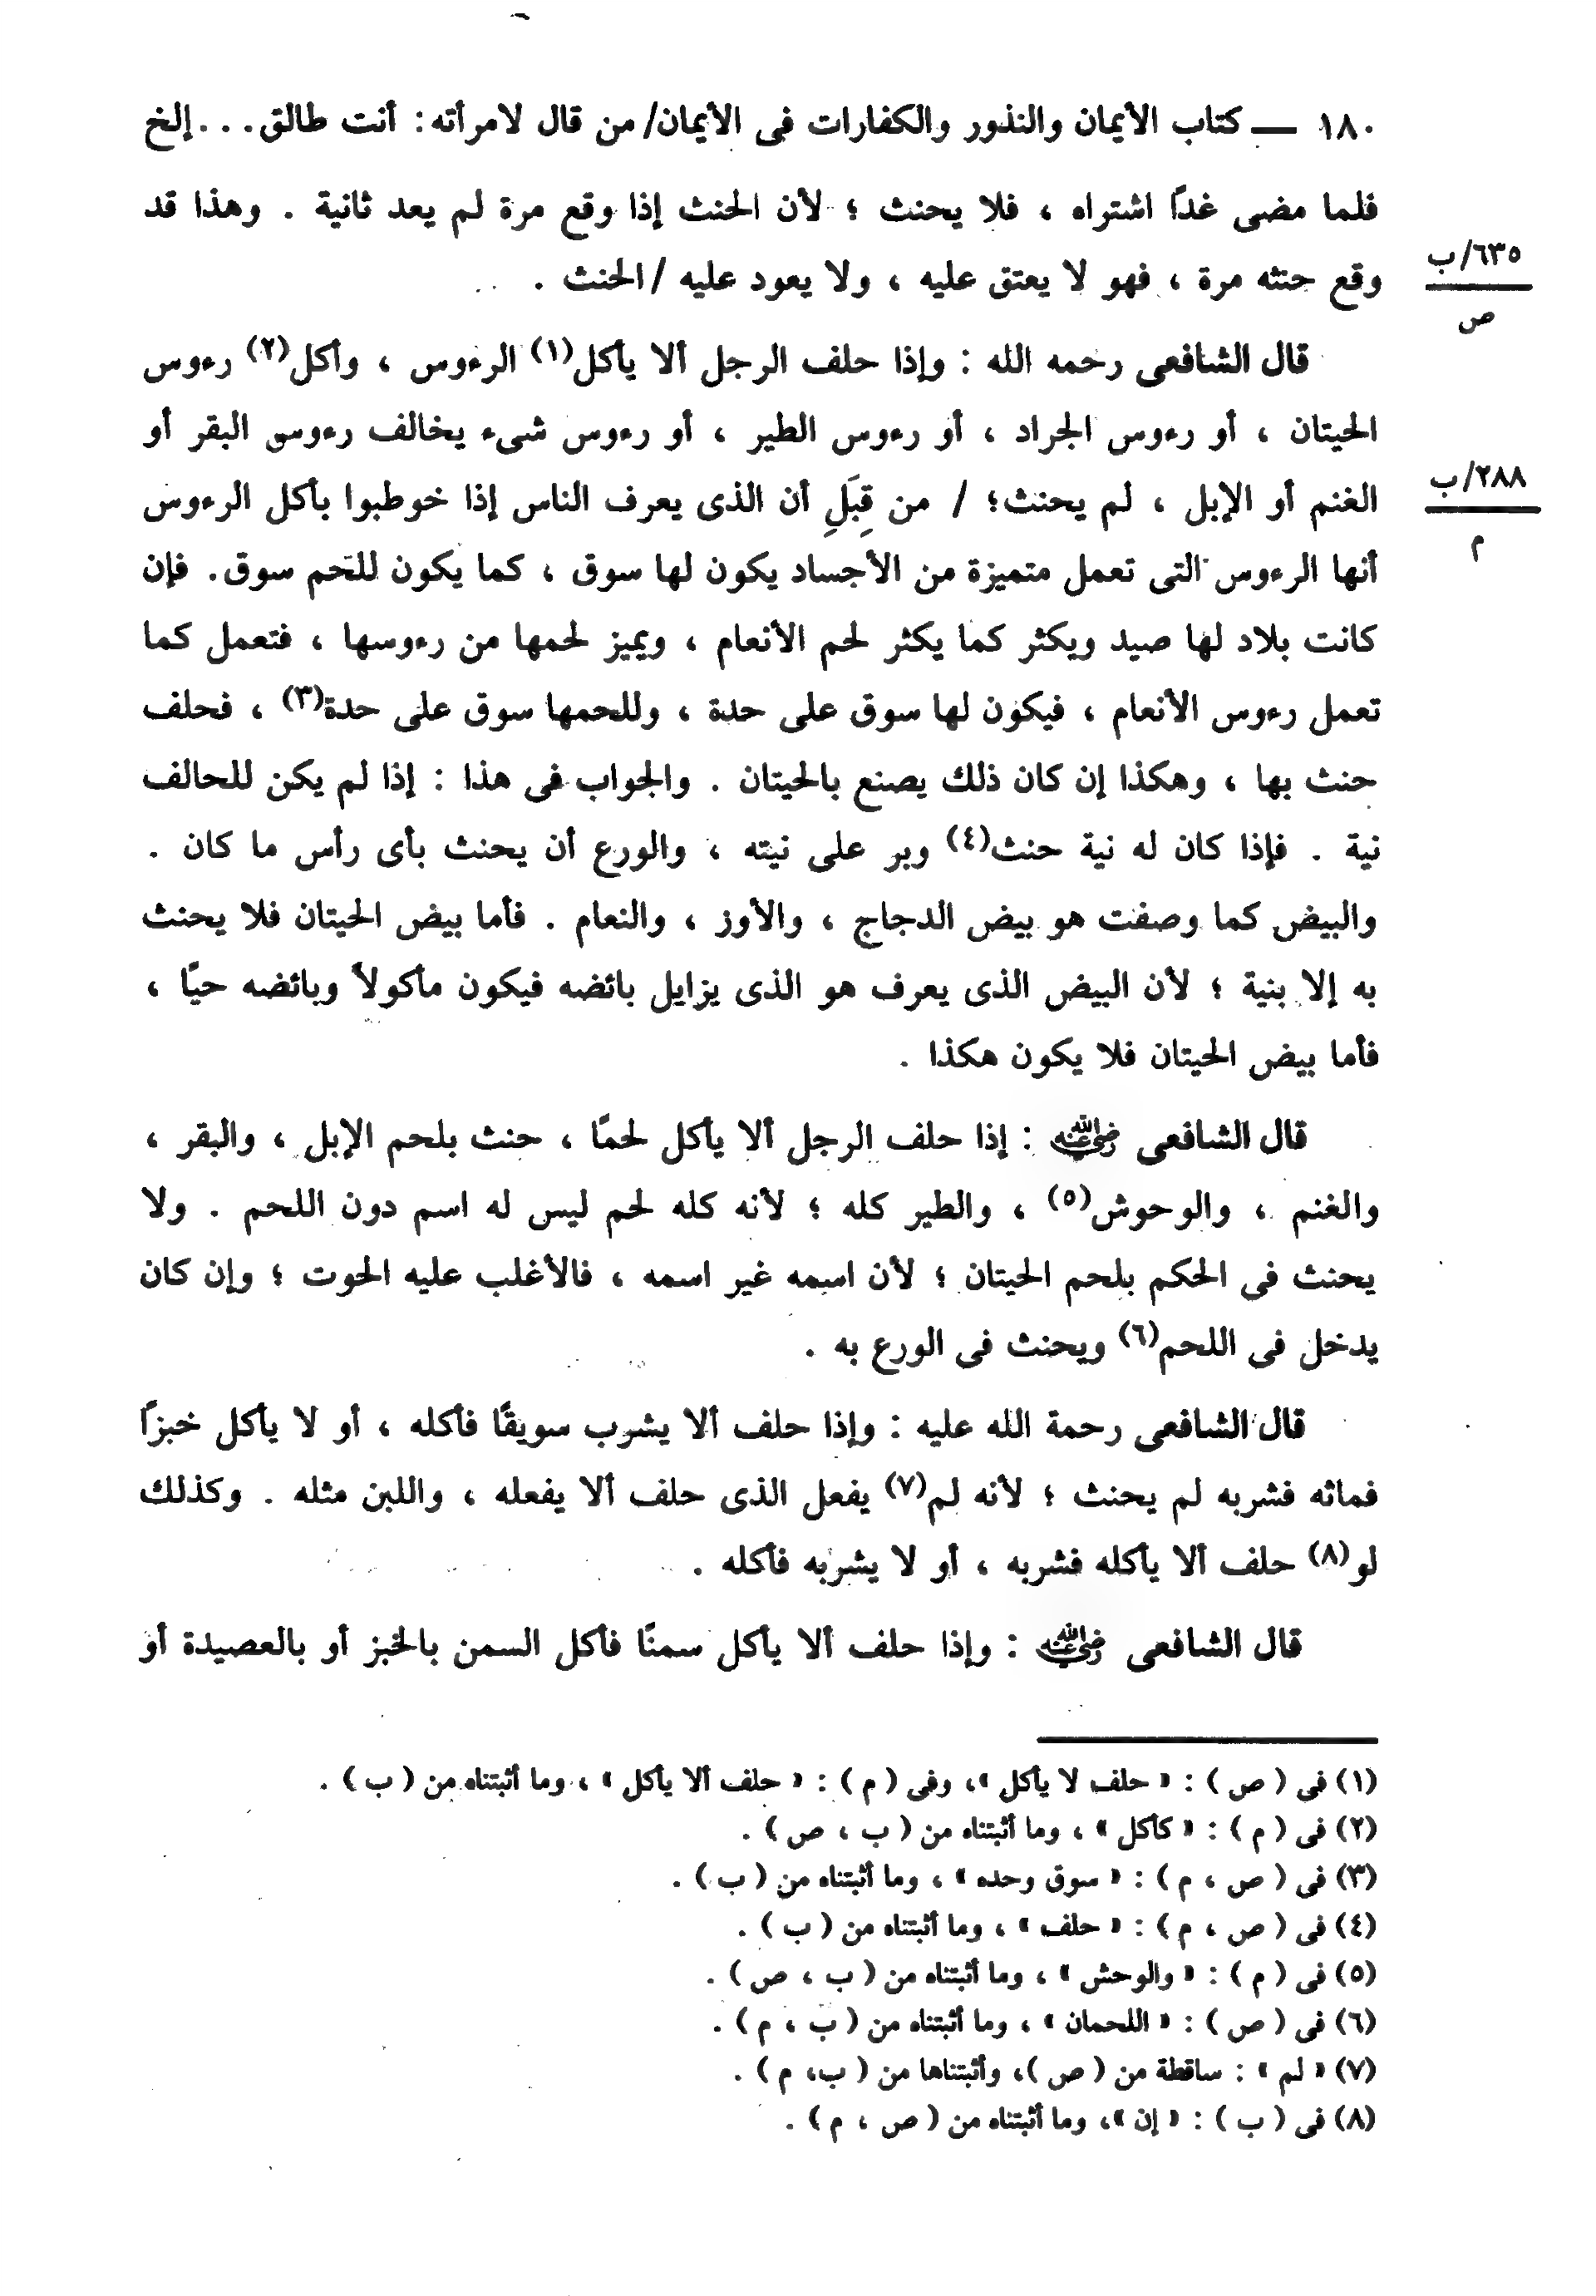 ١٨٠ ـــ كتاب الأيمان والنذور والكفارات فى الأيمان/ من قال لامرأته: أنت طالق. . . إلخ
فلما مضى غدًا اشتراه ، فلا يحنث ؛ لأن الحنث إذا وقع مرة لم يعد ثانية . وهذا قد
٦٣٥/ب
ص
وقع حنثه مرة ، فهو لا يعتق عليه ، ولا يعود عليه / الحنث .
قال الشافعى رحمه الله : وإذا حلف الرجل ألا يأكل(١) الرءوس ، وأكل(٢) رءوس
الحيتان ، أو رءوس الجراد ، أو رءوس الطير ، أو رءوس شىء يخالف رءوس البقر أو
٢٨٨/ب
م
الغنم أو الإبل ، لم يحنث؛ / من قِبَلِ أن الذى يعرف الناس إذا خوطبوا بأكل الرءوس
أنها الرءوس التى تعمل متميزة من الأجساد يكون لها سوق ، كما يكون للحم سوق. فإن
كانت بلاد لها صيد ويكثر كما يكثر لحم الأنعام ، ويميز لحمها من رءوسها ، فتعمل كما
تعمل رءوس الأنعام ، فيكون لها سوق على حدة ، وللحمها سوق على حدة(٣) ، فحلف
حنث بها ، وهكذا إن كان ذلك يصنع بالحيتان . والجواب فى هذا : إذا لم يكن للحالف
نية . فإذا كان له نية حنث(٤) وبر على نيته ، والورع أن يحنث بأى رأس ما كان .
والبيض كما وصفت هو بيض الدجاج ، والأوز ، والنعام . فأما بيض الحيتان فلا يحنث
به إلا بنية ؛ لأن البيض الذى يعرف هو الذى يزايل بائضه فيكون مأكولاً وبائضه حيًا ،
فأما بيض الحيتان فلا يكون هكذا .
قال الشافعى رضي الله عنه : إذا حلف الرجل ألا يأكل لحمًا ، حنث بلحم الإبل ، والبقر ،
والغنم ، والوحوش(٥) ، والطير كله ؛ لأنه كله لحم ليس له اسم دون اللحم . ولا
يحنث فى الحكم بلحم الحيتان ؛ لأن اسمه غير اسمه ، فالأغلب عليه الحوت ؛ وإن كان
يدخل فى اللحم(٦) ويحنث فى الورع به .
قال الشافعى رحمة الله عليه : وإذا حلف ألا يشرب سويقًا فأكله ، أو لا يأكل خبزًا
فماثه فشربه لم يحنث ؛ لأنه لم(٧) يفعل الذى حلف ألا يفعله ، واللبن مثله . وكذلك
لو(٨) حلف ألا يأكله فشربه ، أو لا يشربه فأكله .
قال الشافعى رضي الله عنه : وإذا حلف ألا يأكل سمنًا فأكل السمن بالخبز أو بالعصيدة أو
(١) فى ( ص ) : « حلف لا يأكل »، وفى ( م ) : « حلف ألا يأكل » ، وما أثبتناه من ( ب ) .
(٢) فى ( م ) : « كأكل » ، وما أثبتناه من ( ب ، ص ) .
(٣) فى ( ص ، م ) : « سوق وحده » ، وما أثبتناه من ( ب ) .
(٤) فى ( ص ، م ) : « حلف » ، وما أثبتناه من ( ب ) .
(٥) فى ( م ) : « والوحش » ، وما أثبتناه من ( ب ، ص ) .
(٦) فى ( ص ) : « اللحمان » ، وما أثبتناه من ( ب ، م ) .
(٧) « لم » : ساقطة من ( ص )، وأثبتناها من ( ب، م ) .
(٨) فى ( ب ) : « إن »، وما أثبتناه من ( ص ، م ) .